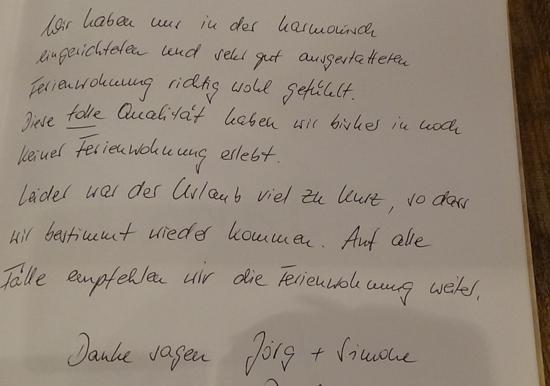 Wir haben uns in der harmonisch
eingerichteten und sehr gut ausgestatteten
Ferienwohnung richtig wohl gefühlt.
Diese tolle Qualität haben wir bisher in noch
keiner Ferienwohnung erlebt.
Leider war der Urlaub viel zu kurz, so dass
wir bestimmt wieder kommen. Auf alle
Fälle empfehlen wir die Ferienwohnung weiter.
Danke sagen Jörg + Simone